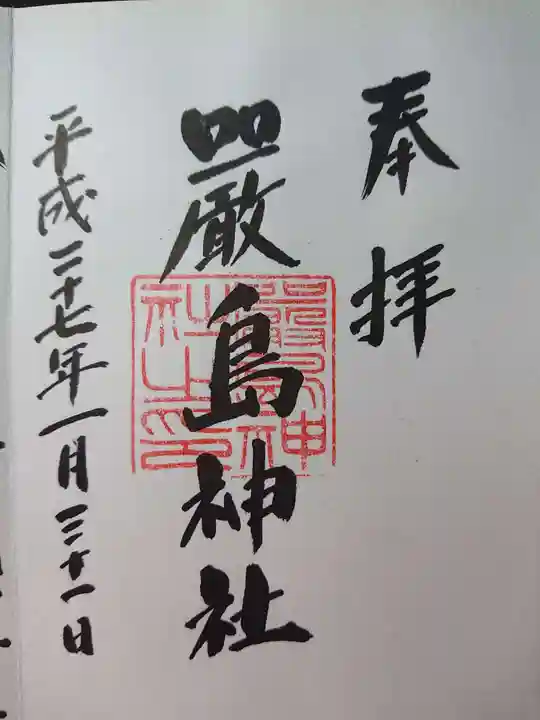 奉拝
嚴島神社
嚴島神社之印
平成二十七年一月三十一日